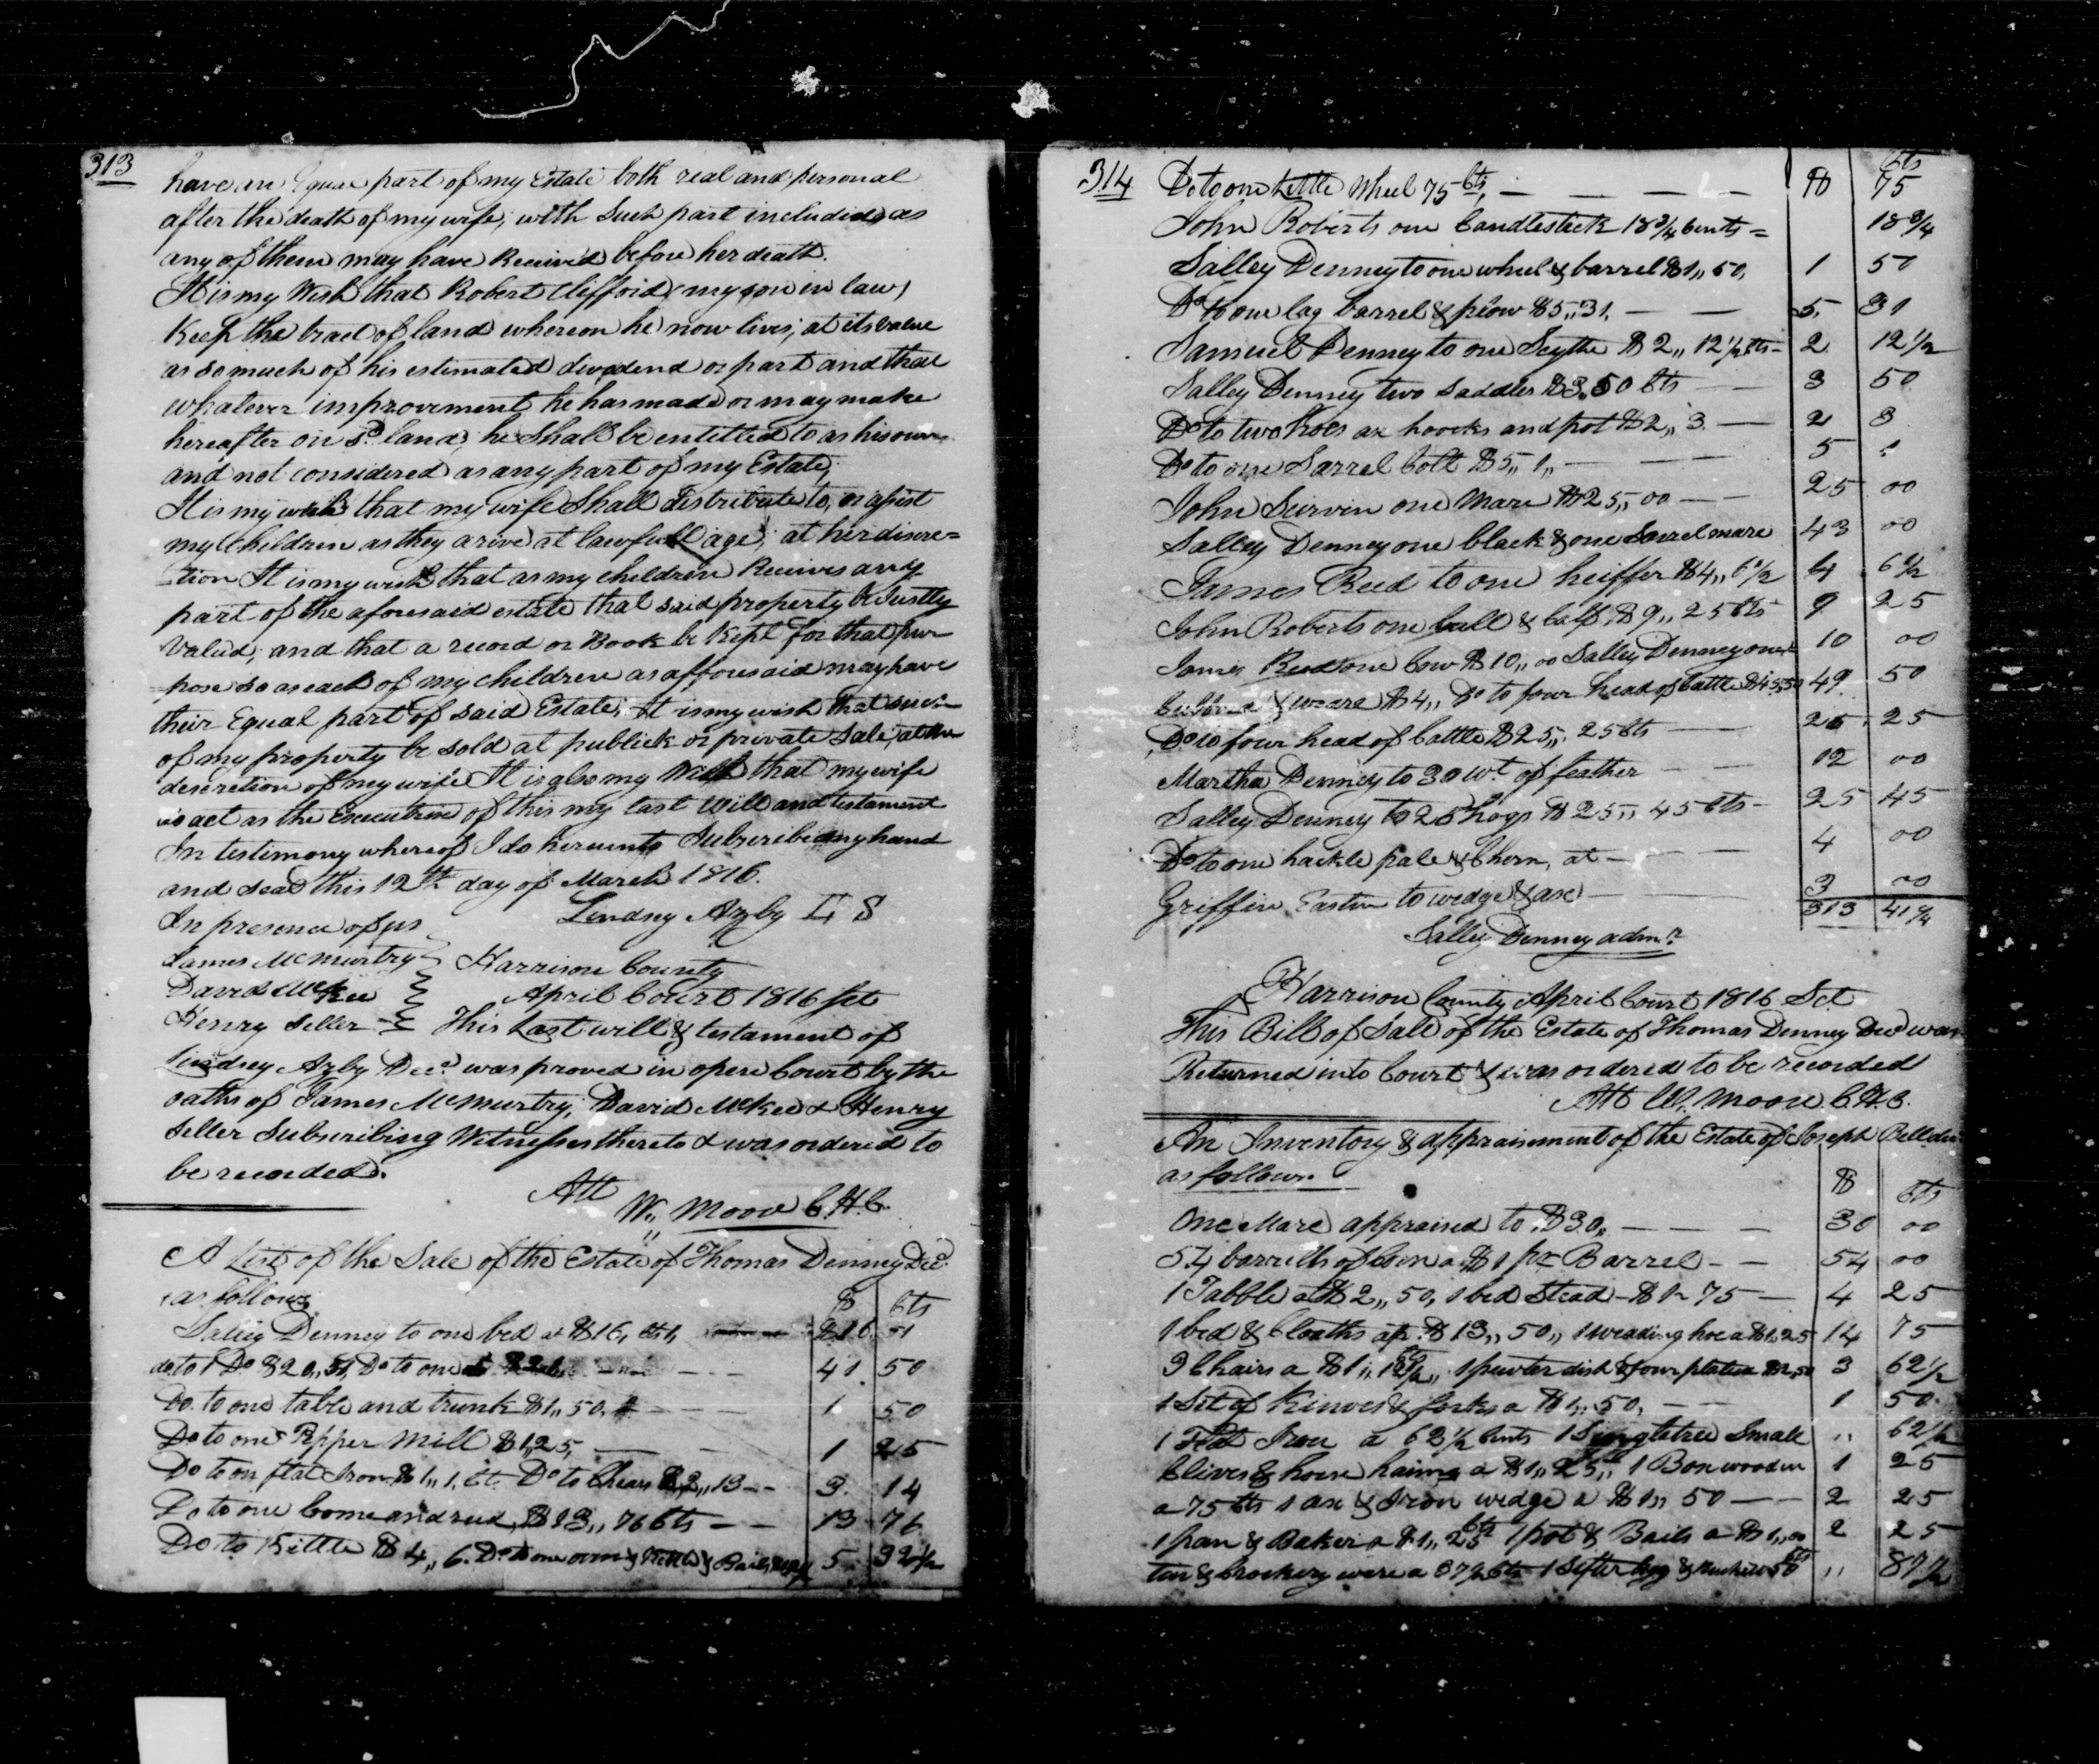 313
have an Equal part of my Estate both real and personal
after the death of my wife, with Such part included as
any of them may have Received before her death.
It is my Wish that Robert Cliffoid (my son in law)
Keep the tract of land whereon he now lives, at its value
as so much of his estimated dividend or part and that
whatever improvement he has made or may make
hereafter on sd. land, he Shall be entitled to as his own
and not considered as any part of my Estate,
It is my wish that my wife Shall distribute to, or assist
my Children as they arive at lawfull age, at her discre=
tion It is my wish that as my children Receives any
part of the aforesaid estate that said property be Justly
Valued, and that a record or Book be Kept for that pur
pose so as each of my children as afforesaid may have
their Equal part of said Estate, It is my wish that such
of my property be sold at publick or private Sale, at the
descretion of my wife It is also my Wish that my wife
act as the Executrix of this my last Will and testament
In testimony whereof I do hereunto Subscribe my hand
and seal this 12th day of March 1816.
In presence of us Lindsey Azby L S
James McMurtry Harrison County
David McKee April Court 1816 Sct
Henry Seller This Last will & testament of
Lindsey Azby Decd. was proved in open Court by the
oaths of James McMurtry, David McKee & Henry
Seller Subscribing Witnesses thereto & was ordered to
be recorded.
Att
W. Moore C.H.C.
A List of the Sale of the Estate of Thomas Denney Decd.
as follows $ Cts
Salley Denney to one bed at $16, Cts 1, 16 1
do to 1 Do $20,, Do to one 41. 50
Do. to one table and trunk $1,, 50, 1 50
Do to one Pepper Mill $1,25, 1 25
Do to on flat Iron $1,, 1, Ct. Do to Chears $2,, 13 -- 3. 14
Do to one Loome and reed, $13,, 76 Cts -- 13 76
Do to Kittle $4,, 6. Do to one oven & Kittle & Bails 5. 32 1/2
314 Do to one Little Wheel 75 Cts, $ Cts 75
John Roberts one Candlestick 18 3/4 Cents = 18 3/4
Salley Denney to one wheel & barrel $1,, 50, 1 50
Do to one lag barrel & plow $5,, 31, 5, 31
Samuel Denney to one Scythe $2,, 12 1/2 Cts - 2 12 1/2
Salley Denney two Saddles $3. 50 Cts 3 50
Do to two Hoes ax hoocks and pot $2,, 3 2 3
Do to one Sarrel Colt $5,, 1,, 5 1
John Survin one Mare $25,, 00 -- 25 00
Salley Denney one black & one Sorrel mare 43 00
James Reed to one heiffer $4,, 6 1/2 4 6 1/2
John Roberts one bull & Calf $9,, 25 Cts 9 25
James Reed one Cow $10,, 00 Salley Denney one 10 00
& weare $4,, Do to four head of Cattle $45,50 49. 50
Do to four head of Cattle $25,, 25 Cts 25. 25
Martha Denney to 30 wt. of feather 12 00
Salley Denney to 25 hogs $25,, 45 Cts - 25 45
Do to one hackle pale & Chern, at 4 00
Griffin Easton to wedge & axe 3 00
313 41 1/4
Salley Denney admr.
Harrison County April Court 1816 Sct
This Bill of Sale of the Estate of Thomas Denney Decd was
Returned into Court & was ordered to be recorded
Att W. Moore C.H.C.
An Inventory & appraisement of the Estate of Joseph Bell
as follows. $ Cts
One Mare appraised to $30, 30 00
54 barrells of Corn a $1 pr Barrel -- 54 00
1 Tabble at $2,, 50, 1 bed Stead - $1 - 75 -- 4 25
1 bed & Cloaths ap. $13,, 50,, 1 weading hoe a $1,25 14 75
3 Chairs a $1,, 12 1/2,, 1 pewter dish & four plates a $2,50 3 62 1/2
1 Set of Kinves & forks a $1,, 50, -- 1 50
1 Flat Iron a 62 1/2 Cents 1 Singletree Small ,, 62 1/2
Clives & horse haims a $1,, 25,, 1 Box wooden 1 25
a 75 Cts 1 ax & Iron wedge a $1,, 50 -- 2 25
1 pan & Baker a $1,, 25 Cts 1 pot & Bails a $1,,00 2 25
tin & Crockery ware a 37 1/2 Cts 1 Sifter & 50 Cts ,, 87 1/2